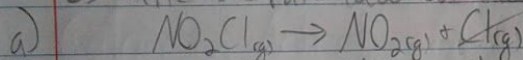 a) NO₂Cl(g) → NO₂(g) + Cl(g)